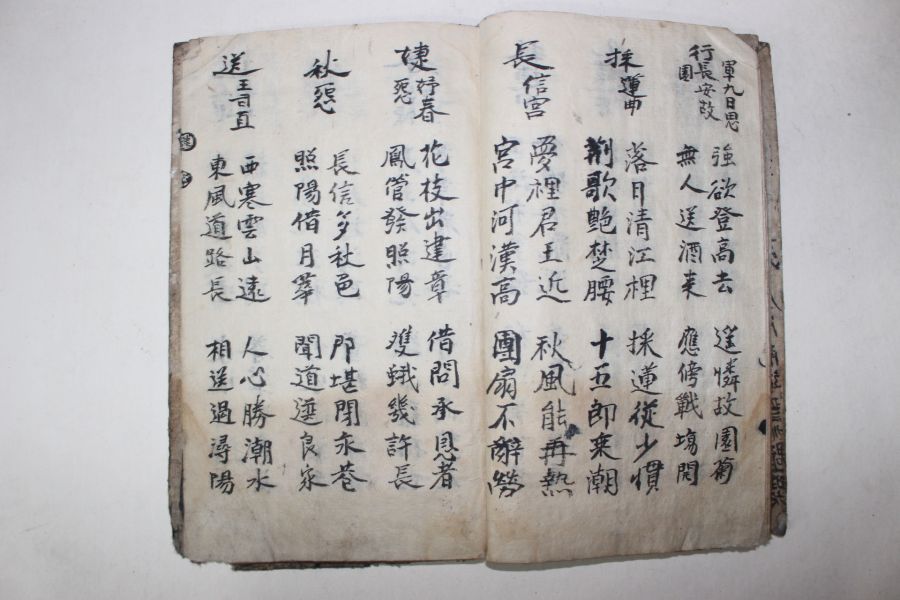 軍九日思
行長安故
園
強欲登高去 遥憐故園菊
無人送酒来 應傍戰場開
採蓮曲
落日清江裡 採蓮從少慣
荆歌艶楚腰 十五即来潮
長信宮
愛裡君王近 秋風能再熱
宮中河漢高 團扇不辭勞
婕妤春
怨
花枝出建章 借問承恩者
鳳管發照陽 雙蛾幾許長
秋怨
長信多秋色 那堪閉永巷
照陽借月華 聞道選良家
送王司直
西寒雲山遠 人心勝潮水
東風道路長 相送過潯陽